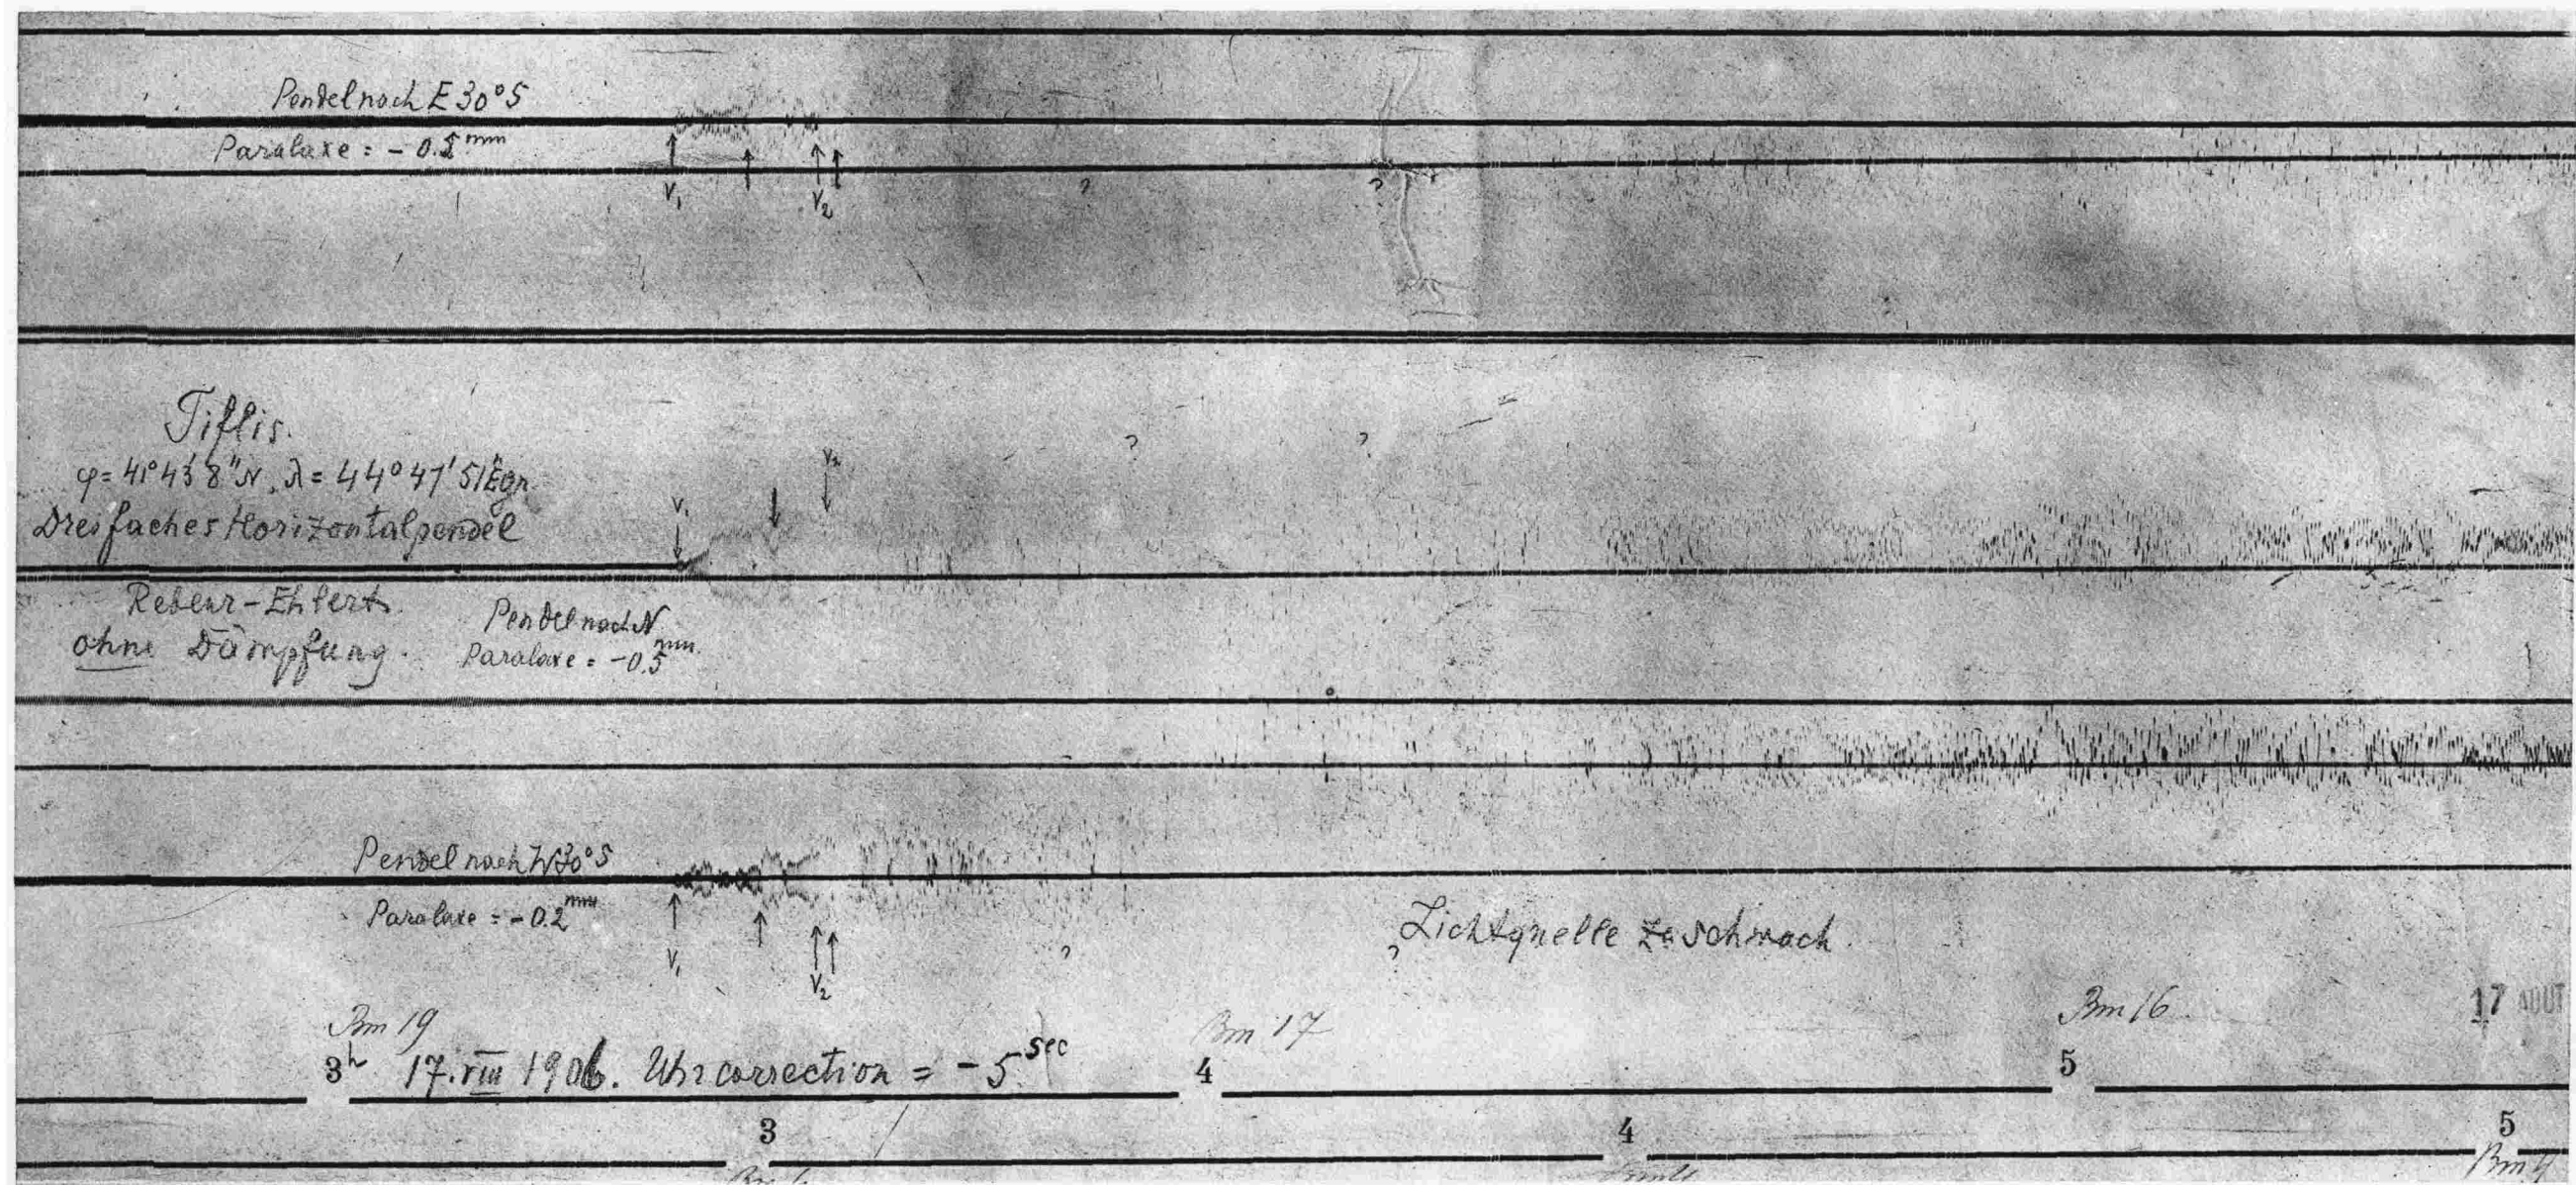 Pendel nach E 30° S
Paralaxe = - 0.5 mm
V₁
V₂
?
?
Tiflis.
φ = 41° 43' 8" N, λ = 44° 47' 51" E gr.
Dreifaches Horizontalpendel
V₁
V₂
?
?
Rebeur-Ehlert.
ohne Dämpfung.
Pendel nach N
Paralaxe = -0.5 mm
Pendel nach W 30° S
Paralaxe = -0.2 mm
V₁
V₂
?
?
Lichtquelle zu schwach
Bm 19
Bm 17
Bm 16
17 AOUT
3h 17. VIII 1906. Uhrcorrection = -5 sec
4
5
3
4
5
Bm 4